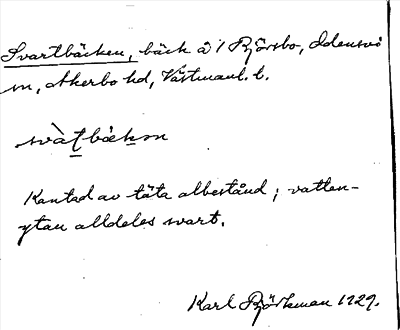 Svartbäcken, bäck å / Björsbo, Odensvi
sn, Åkerbo hd, Västmanl. l.
svàt̠bäck̠ɘn
Kantad av täta albestånd; vatten-
ytan alldeles svart.
Karl Björkman 1929.